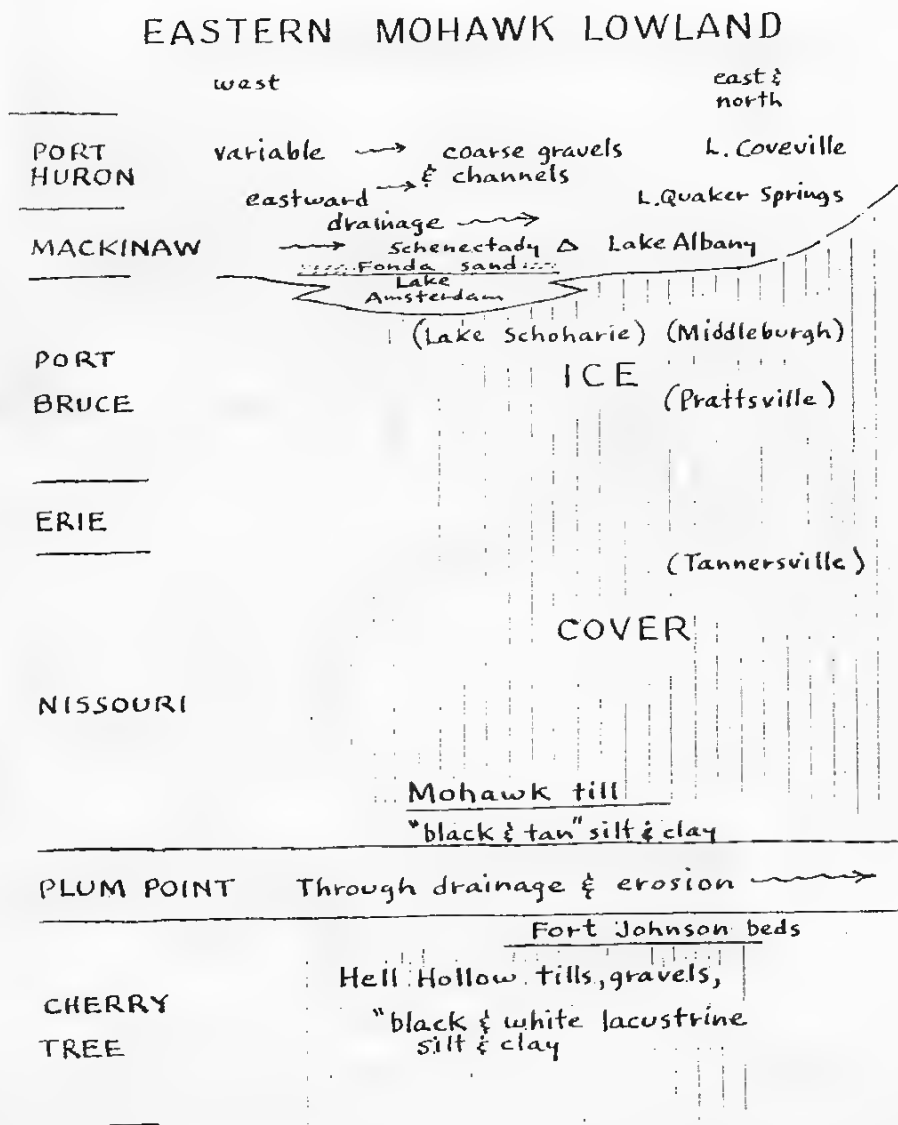 EASTERN MOHAWK LOWLAND
west
east &
north
PORT
HURON
variable → coarse gravels
& channels
L. Coveville
eastward →
drainage →
L. Quaker Springs
MACKINAW
→ Schenectady Δ Lake Albany
Fonda sand
Lake
Amsterdam
(Lake Schoharie) (Middleburgh)
PORT
BRUCE
ICE
(Prattsville)
ERIE
(Tannersville)
COVER
NISSOURI
Mohawk till
"black & tan" silt & clay
PLUM POINT Through drainage & erosion →
Fort Johnson beds
CHERRY
TREE
Hell Hollow tills, gravels,
"black & white lacustrine
silt & clay